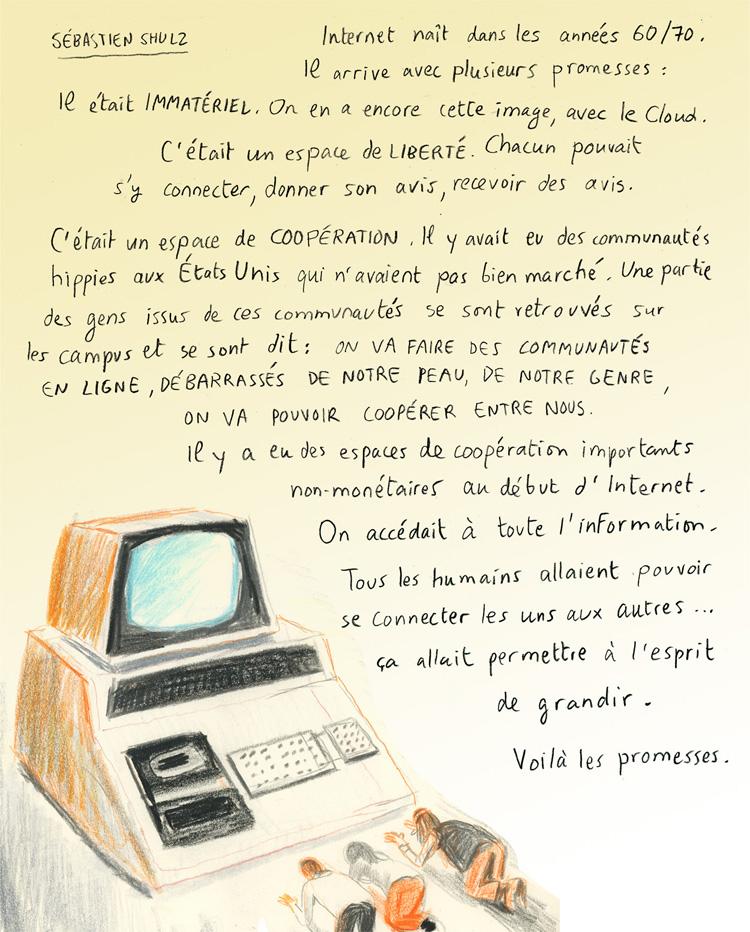 SÉBASTIEN SHULZ
Internet naît dans les années 60/70.
Il arrive avec plusieurs promesses :
Il était IMMATÉRIEL. On en a encore cette image, avec le Cloud.
C'était un espace de LIBERTÉ. Chacun pouvait
s'y connecter, donner son avis, recevoir des avis.
C'était un espace de COOPÉRATION. Il y avait eu des communautés
hippies aux États Unis qui n'avaient pas bien marché. Une partie
des gens issus de ces communautés se sont retrouvés sur
les campus et se sont dit : ON VA FAIRE DES COMMUNAUTÉS
EN LIGNE, DÉBARRASSÉS DE NOTRE PEAU, DE NOTRE GENRE,
ON VA POUVOIR COOPÉRER ENTRE NOUS.
Il y a eu des espaces de coopération importants
non-monétaires au début d'Internet.
On accédait à toute l'information.
Tous les humains allaient pouvoir
se connecter les uns aux autres...
ça allait permettre à l'esprit
de grandir.
Voilà les promesses.